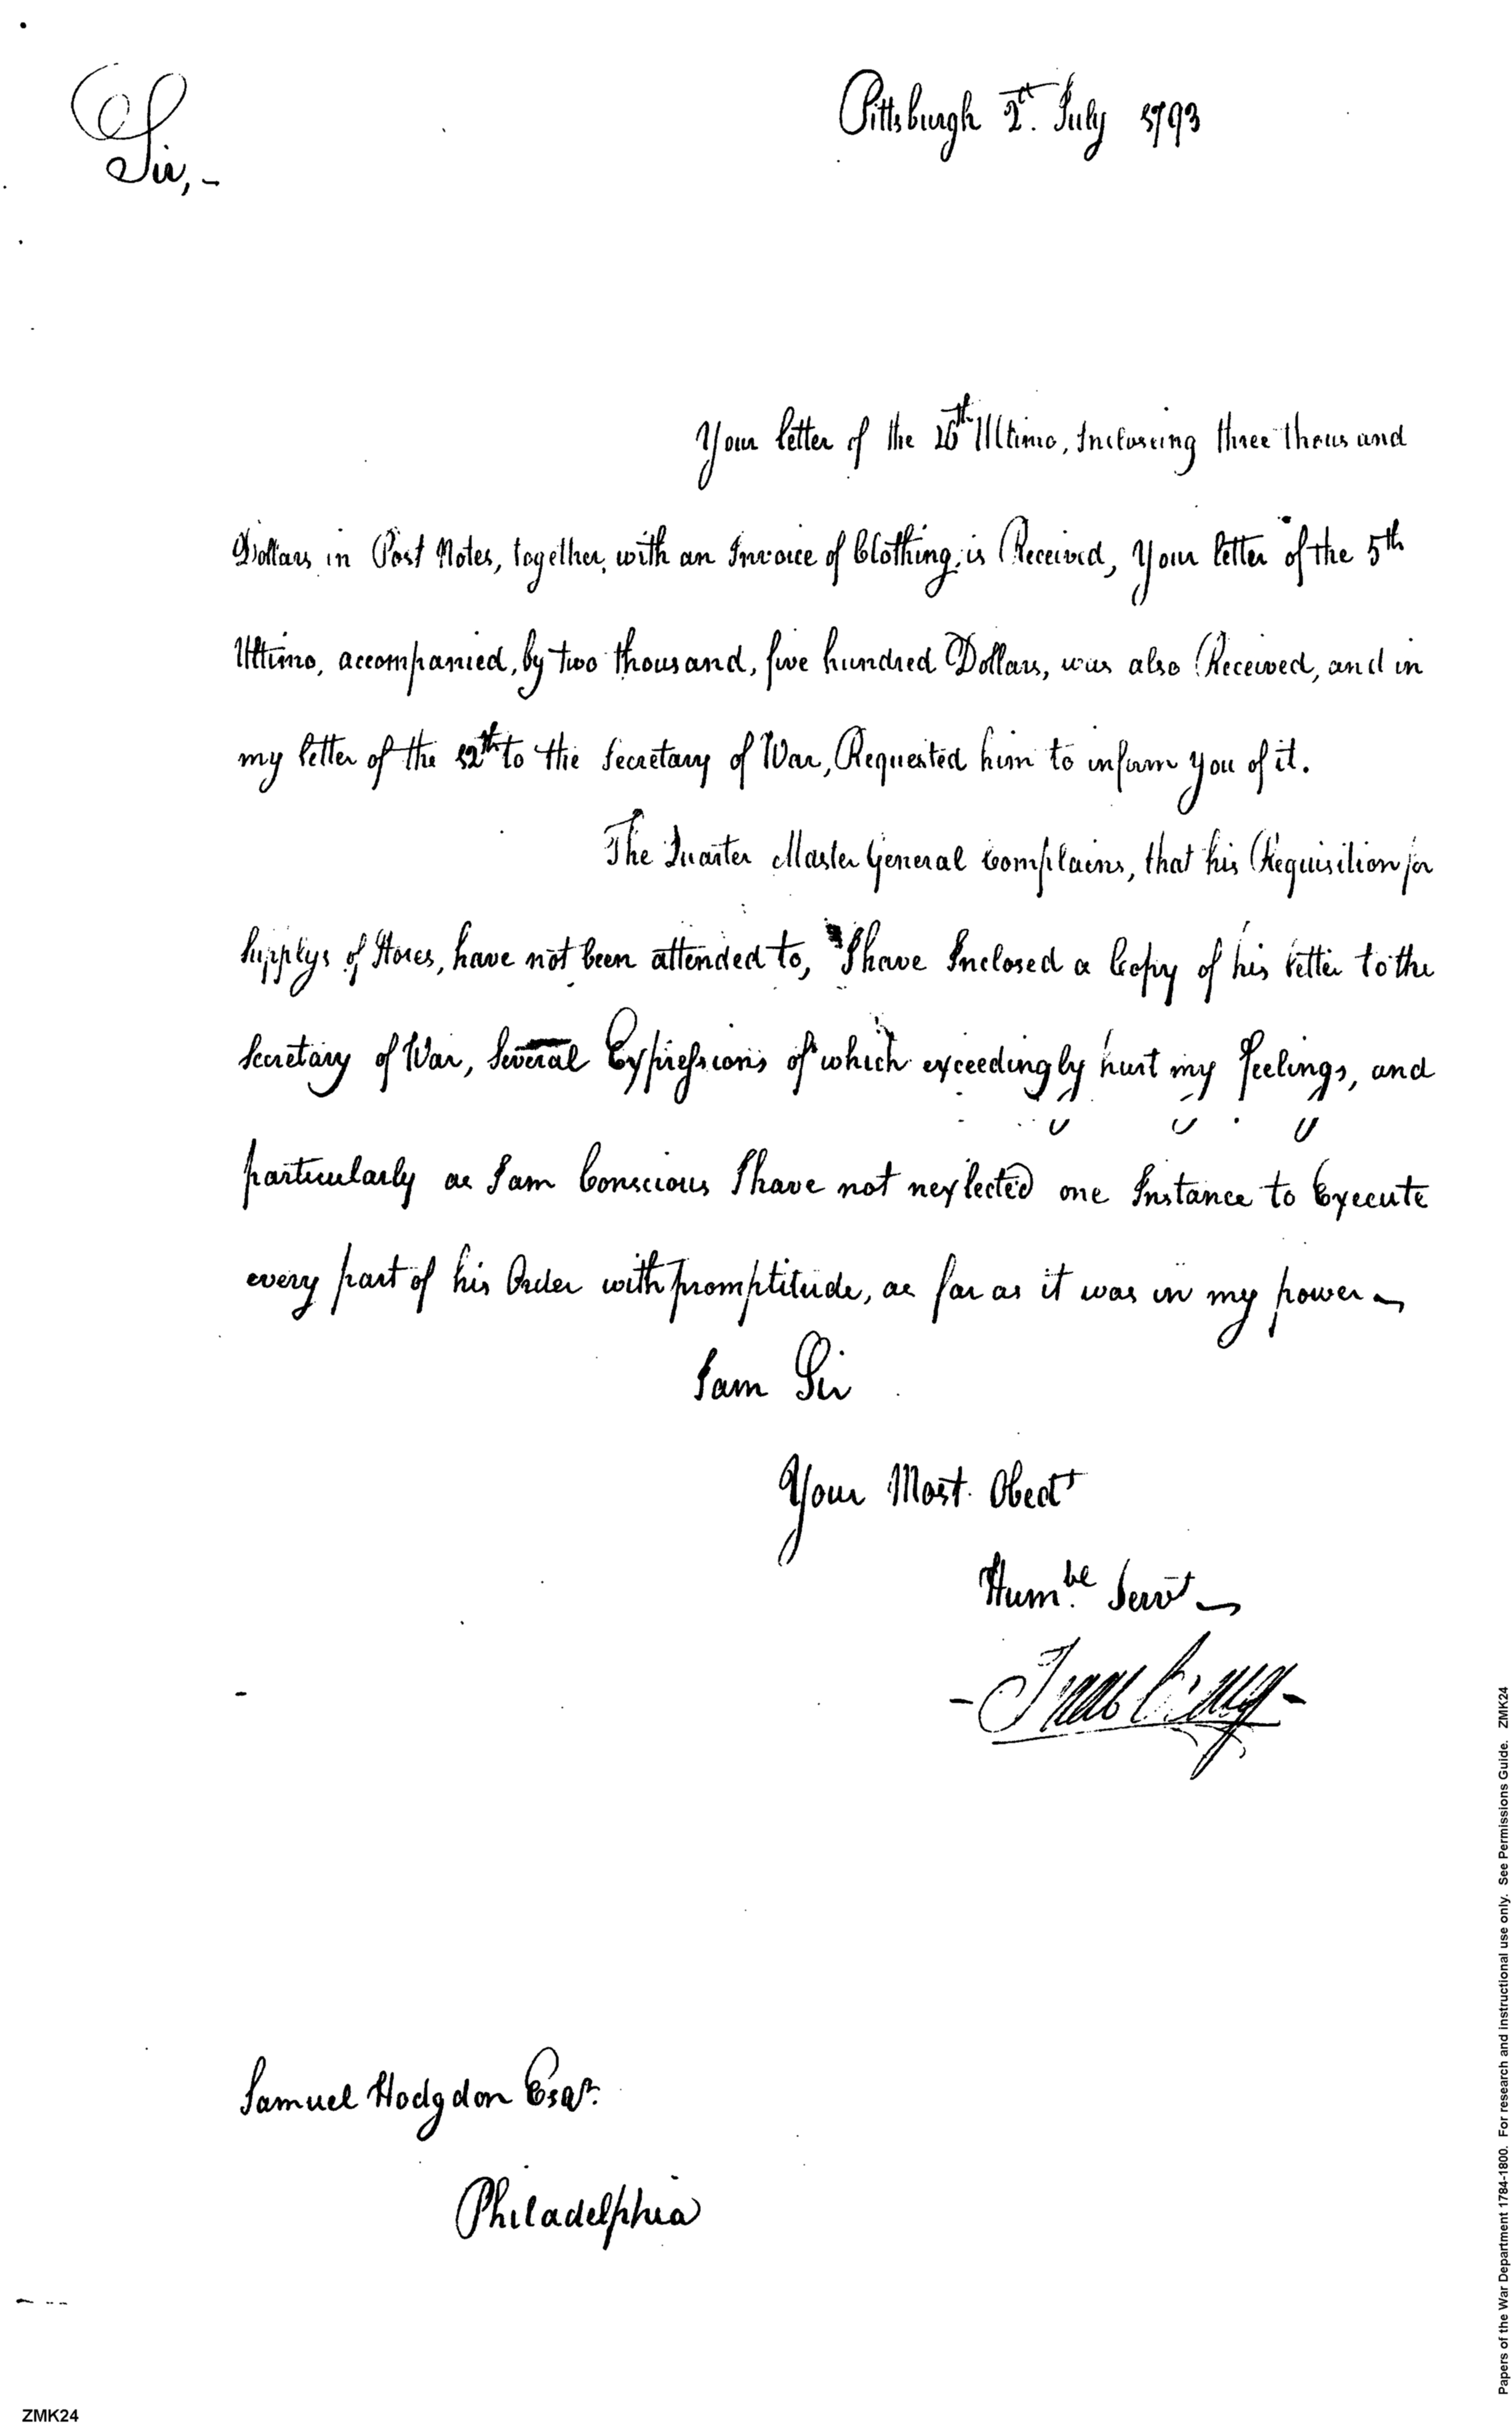 Pittsburgh 2th July 1793
Sir,-
Your letter of the 26th Ultimo, Inclosing three thousand
Dollars in Post Notes, together, with an Invoice of Clothing, is Received, Your letter of the 5th
Ultimo, accompanied, by two thousand, five hundred Dollars, was also Received, and in
my letter of the 12th to the Secretary of War, Requested him to inform you of it.
The Quarter Master General Complains, that his Requisition for
Supplys of Stores, have not been attended to, I have Inclosed a Copy of his letter to the
Secretary of War, Several Expressions of which exceedingly hurt my feelings, and
particularly as I am Conscious I have not neglected one Instance to Execute
every part of his Order with promptitude, as far as it was in my power
I am Sir
Your Most Obedt
Humbe Servt
Isaac Craig
Samuel Hodgdon Esqr.
Philadelphia
ZMK24
Papers of the War Department 1784-1800. For research and instructional use only. See Permissions Guide. ZMK24